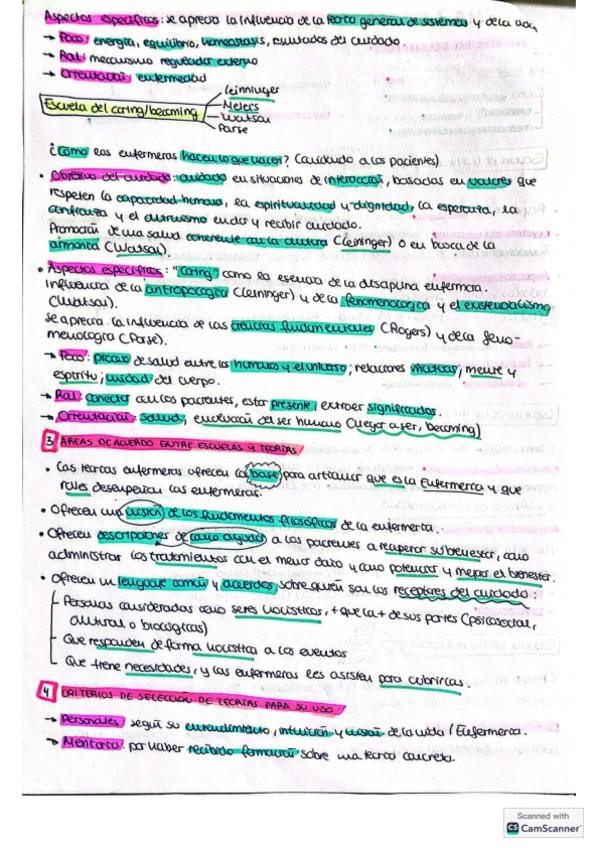 Aspectos específicos: se aprecia la influencia de la teoría general de sistemas y de la
→ Foco: energía, equilibrio, homeostasis, resultados del cuidado.
→ Rol: mecanismo regulador externo
→ Orientación: enfermedad
Escuela del caring/becoming
Leininger
Meleis
Watson
Parse
¿Cómo las enfermeras hacen lo que hacen? (cuidado a los pacientes)
• Objetivo del cuidado: cuidado en situaciones de interacción, basadas en valores que
respeten la capacidad humana, la espiritualidad y dignidad, la esperanza, la
confianza y el altruismo en dar y recibir cuidado.
Promoción de una salud coherente con la cultura (Leininger) o en busca de la
armonía (Watson).
• Aspectos específicos: "caring" como la esencia de la disciplina enfermera.
Influencia de la antropología (Leininger) y de la fenomenología y el existencialismo
(Watson).
Se aprecia la influencia de las ciencias fundamentales (Rogers) y de la feno-
menología (Parse).
→ Foco: proceso de salud entre los humanos y el universo; relaciones mutuas; mente y
espíritu; unidad del cuerpo.
→ Rol: conectar con los pacientes, estar presente, extraer significados.
→ Orientación: Salud, evolución del ser humano (llegar a ser, becoming)
3 ÁREAS DE ACUERDO ENTRE ESCUELAS Y TEORÍAS
• Las teorías enfermeras ofrecen la base para articular que es la Enfermería y que
roles desempeñan las enfermeras.
• Ofrecen una visión de los fundamentos filosóficos de la enfermería.
• Ofrecen descripciones de como ayudar a los pacientes a recuperar su bienestar, como
administrar los tratamientos con el menor daño y como potenciar y mejorar el bienestar.
• Ofrecen un lenguaje común y acuerdos sobre quién son los receptores del cuidado:
Personas consideradas como seres holísticos, + que la + de sus partes (psicosocial,
cultural o biológicas)
Que responden de forma holística a los eventos
Que tiene necesidades, y las enfermeras les asisten para cubrirlas.
4 CRITERIOS DE SELECCIÓN DE TEORÍAS PARA SU USO
→ Personales: según su entendimiento, intuición y visión de la vida / Enfermería.
→ Mentoría: por haber recibido formación sobre una teoría concreta.
Scanned with
CS CamScanner